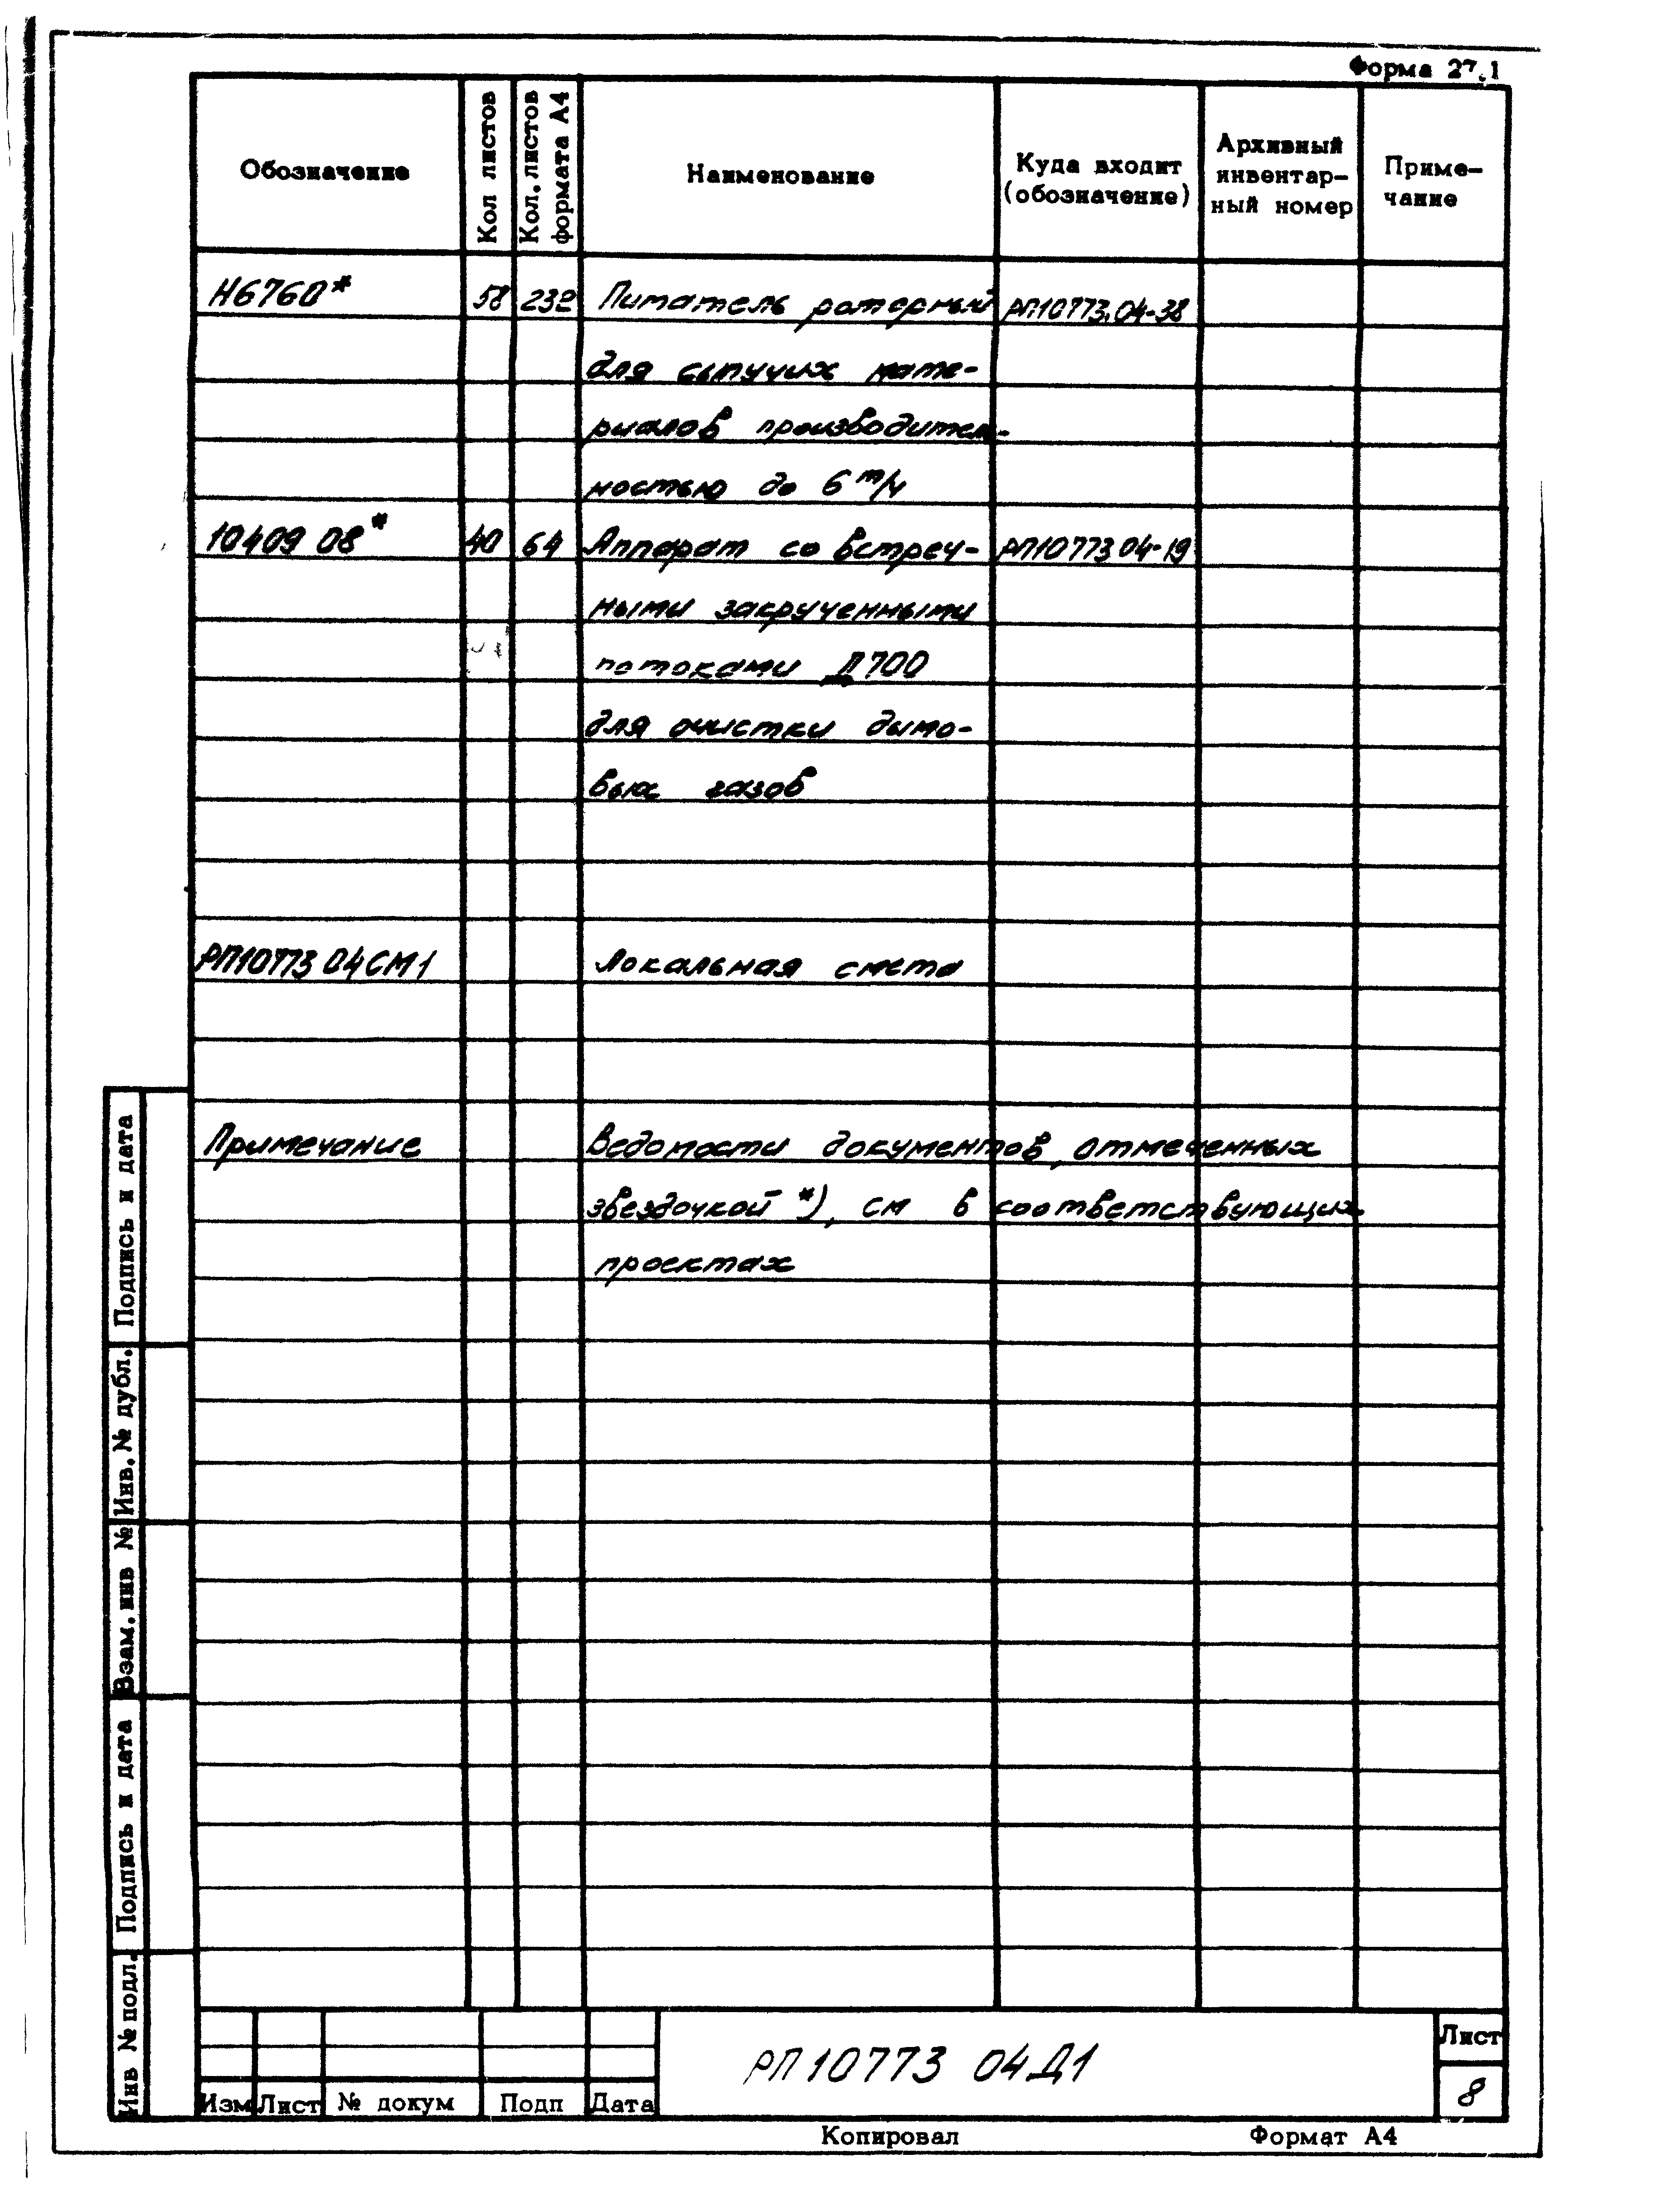 Форма 27.1
Обозначение
Кол листов
Кол. листов
формата А4
Наименование
Куда входит
(обозначение)
Архивный
инвентар-
ный номер
Приме-
чание
Н6760* 58 232 Питатель роторный РП10773.04-38
для сыпучих мате-
риалов производитель-
ностью до 6 т/ч
10409 08* 40 64 Аппарат со встреч- РП10773 04-19
ными закрученными
потоками Д700
для очистки дымо-
вых газов
РП10773 04СМ1 Локальная смета
Примечание Ведомости документов, отмеченных
звездочкой *), см в соответствующих
проектах
Подпись и дата
Инв. № дубл.
Взам. инв №
Подпись и дата
Инв № подл.
Изм Лист № докум Подп Дата
РП10773 04Д1
Лист
8
Копировал Формат А4